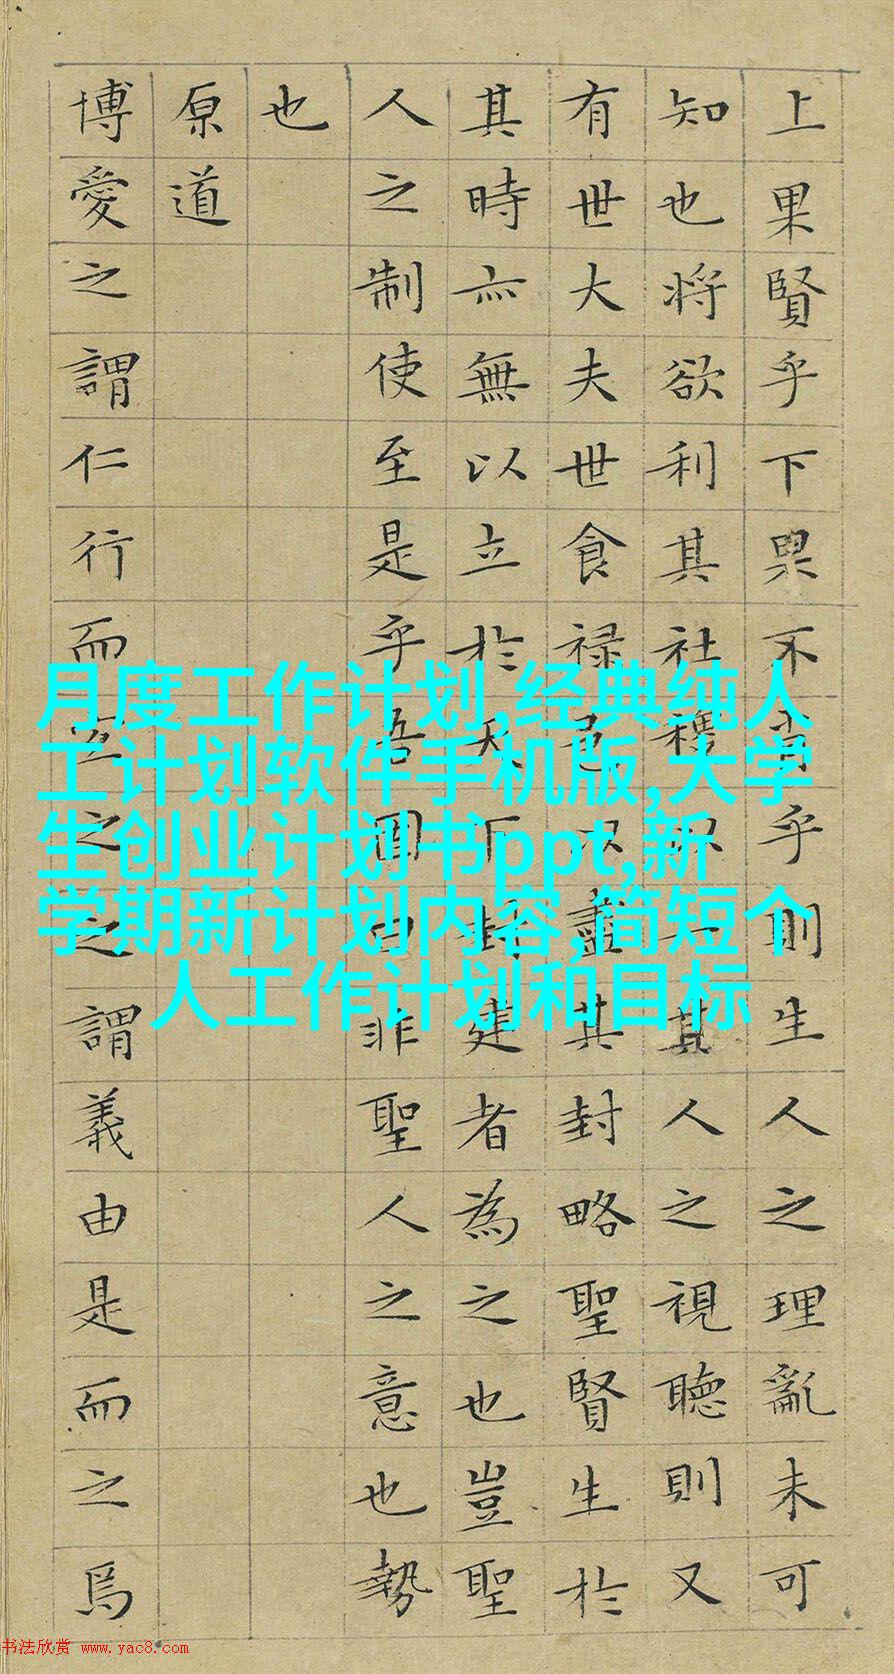 上果賢乎下果不肖乎則生人之理亂未可
知也將欲利其社稷以一其人之視聽則又
有世大夫世食禄邑以盡其封略聖賢生於
其時亦無以立於天下封建者為之也豈聖
人之制使至是乎吾固曰非聖人之意也勢
也
原道
博愛之謂仁行而宜之之謂義由是而之焉
月度工作计划,经典纯人
工计划软件手机版,大学
生创业计划书ppt,新
学期新计划内容,简短个
人工作计划和目标
书法欣赏 www.yac8.com